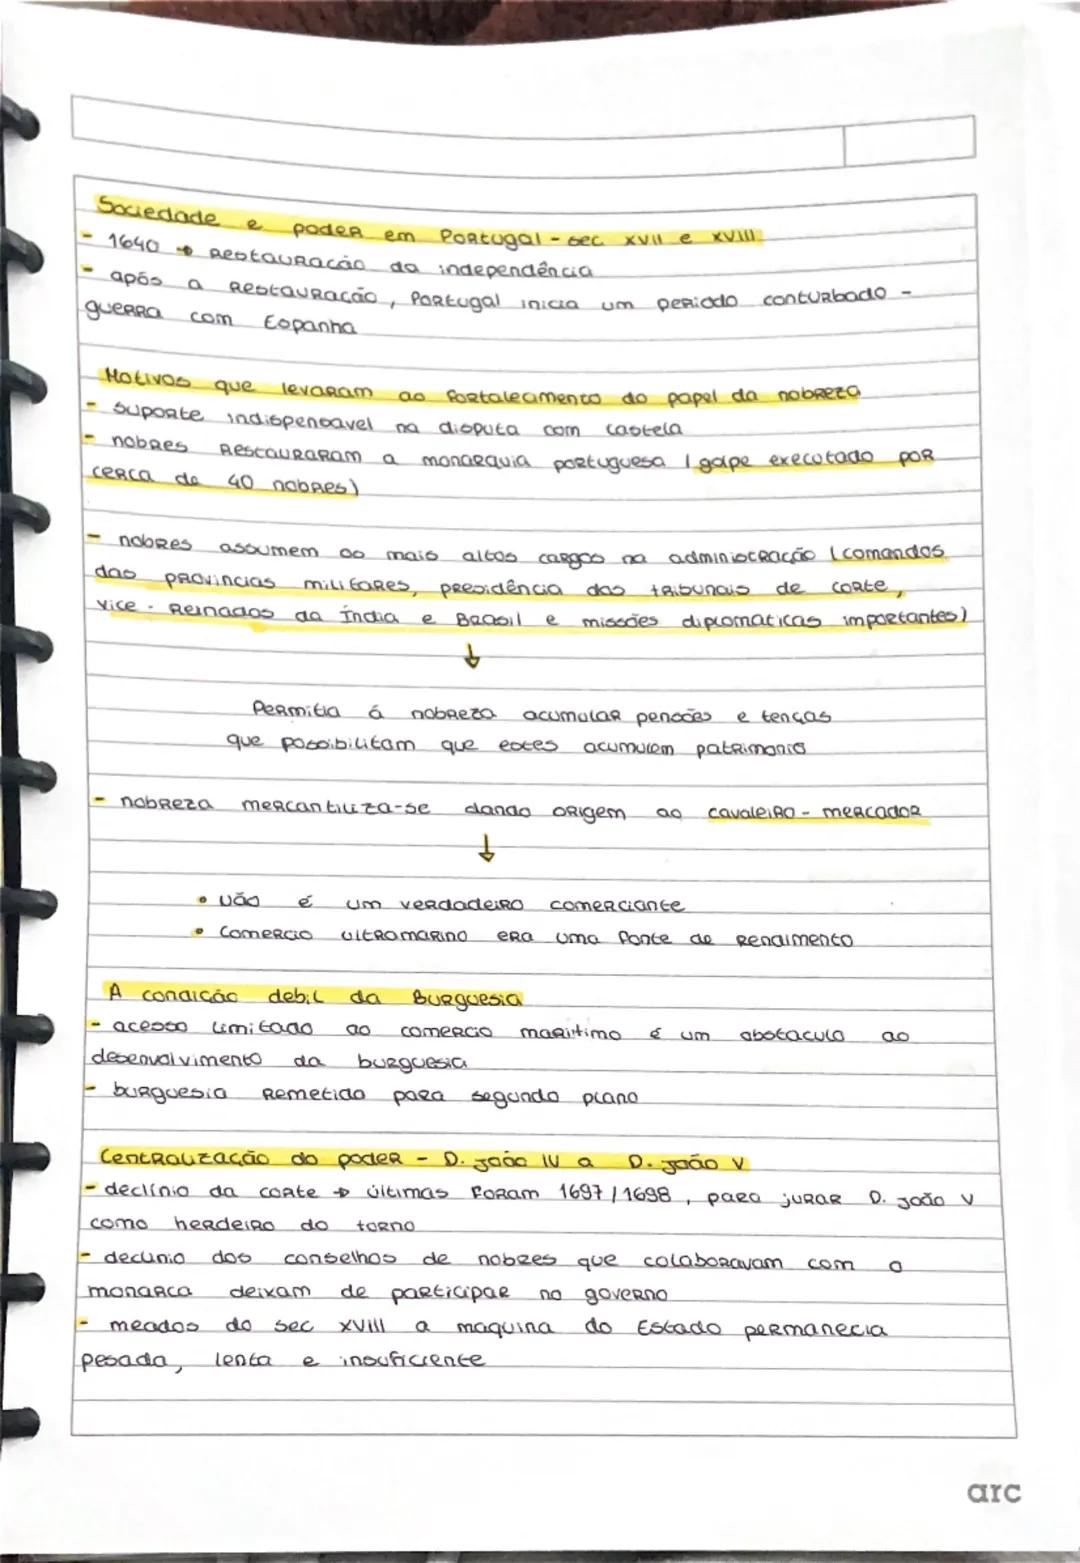 Sociedade e poder em Portugal - sec XVII e XVIII
- 1640 → Restauração da independência
- após a Restauração, Portugal inicia um periodo conturbado -
guerra com Espanha
Motivos que levaram ao fortalecimento do papel da nobreza
- suporte indispensavel na disputa com castela
- nobres Restauraram a monarquia portuguesa (golpe executado por
cerca de 40 nobres)
- nobres assumem os mais altos cargos na administração (comandos
das provincias militares, presidência das tribunais de corte,
vice-Reinados da Índia e Brasil e missões diplomaticas importantes)
↓
Permitia á nobreza acumular pensões e tenças
que possibilitam que estes acumulem patrimonio
- nobreza mercantiliza-se dando origem ao cavaleiro-mercador
↓
• Não é um verdadeiro comerciante
• Comercio ultromarino era uma fonte de rendimento
A condição debil da Burguesia
- acesso limitado ao comercio maritimo é um obstaculo ao
desenvolvimento da burguesia
- burguesia remetida para segundo plano
Centralização do poder - D. João IV a D. João V
- declínio da corte → últimas foram 1697/1698, para jurar D. João V
como herdeiro do torno
- declinio dos conselhos de nobres que colaboravam com o
monarca deixam de participar no governo
- meados do sec XVIII a maquina do Estado permanecia
pesada, lenta e insuficiente
arc